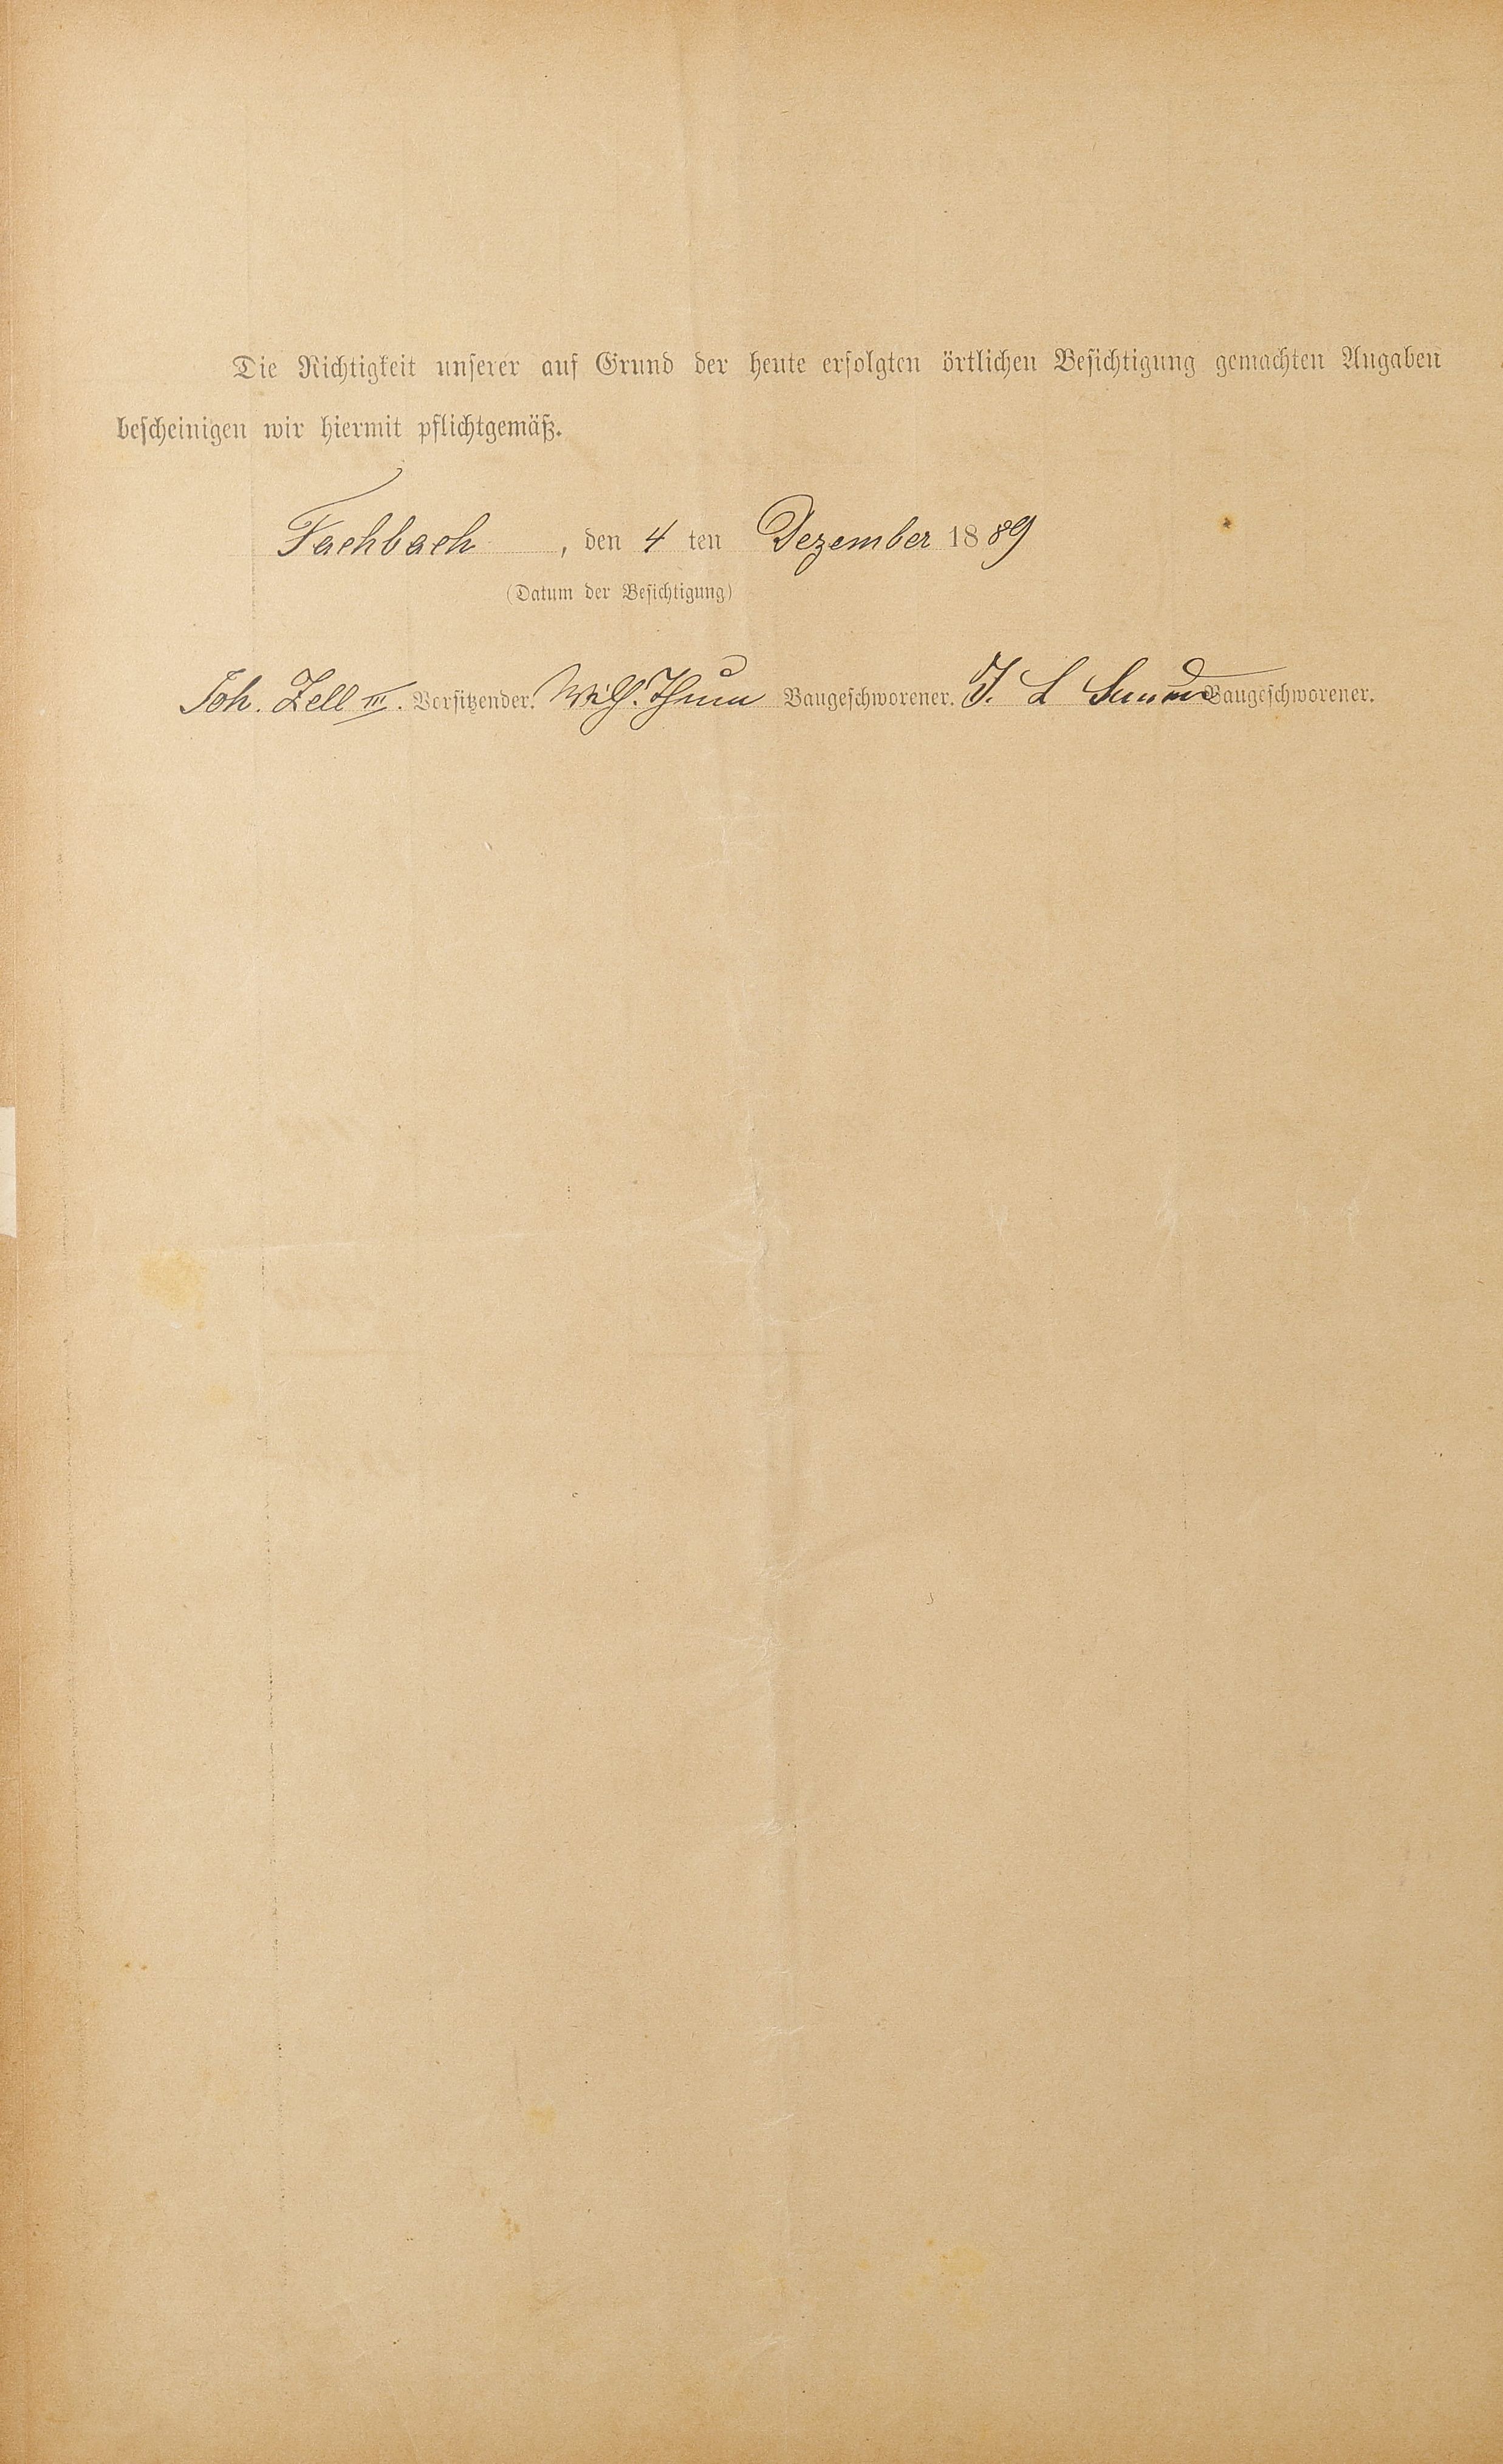 Die Richtigkeit unserer auf Grund der heute erfolgten örtlichen Besichtigung gemachten Angaben
bescheinigen wir hiermit pflichtgemäß.
Fachbach, den 4 ten Dezember 1889
(Datum der Besichtigung)
Joh. Zell III. Vorsitzender. Wilh. Thum Baugeschworener. J. L Baugeschworener.